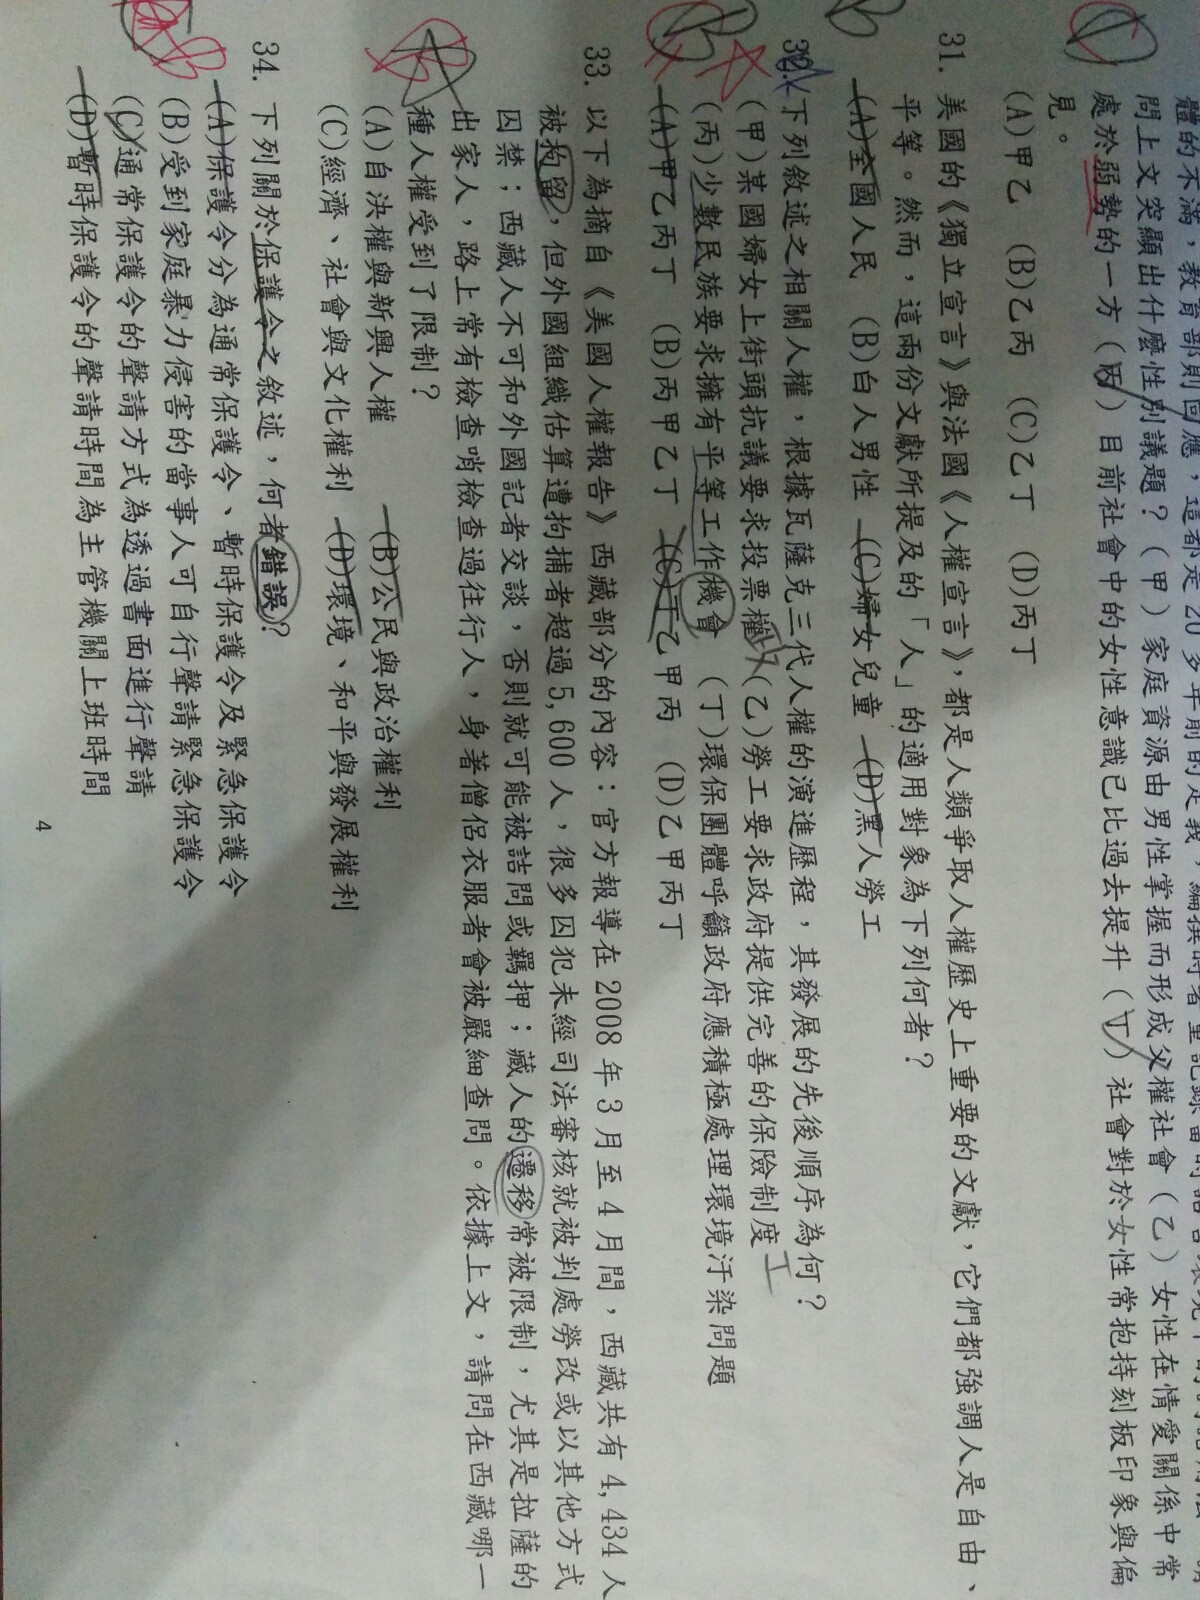 體的不滿，教育部則回應，這都是20多年前的定義，編撰時著重記錄當時
問上文突顯出什麼性別議題？（甲）家庭資源由男性掌握而形成父權社會（乙）女性在情愛關係中常
處於弱勢的一方（丙）目前社會中的女性意識已比過去提升（丁）社會對於女性常抱持刻板印象與偏
見。
(A)甲乙 (B)乙丙 (C)乙丁 (D)丙丁
31. 美國的《獨立宣言》與法國《人權宣言》，都是人類爭取人權歷史上重要的文獻，它們都強調人是自由、
平等。然而，這兩份文獻所提及的「人」的適用對象為下列何者？
(A)全國人民 (B)白人男性 (C)婦女兒童 (D)黑人勞工
B
32. 下列敘述之相關人權，根據瓦薩克三代人權的演進歷程，其發展的先後順序為何？
(甲)某國婦女上街頭抗議要求投票權 (乙)勞工要求政府提供完善的保險制度
(丙)少數民族要求擁有平等工作機會 (丁)環保團體呼籲政府應積極處理環境汙染問題
(A)甲乙丙丁 (B)丙甲乙丁 (C)丁乙甲丙 (D)乙甲丙丁
33. 以下為摘自《美國人權報告》西藏部分的內容：官方報導在2008年3月至4月間，西藏共有4,434人
被拘留，但外國組織估算遭拘捕者超過5,600人，很多囚犯未經司法審核就被判處勞改或以其他方式
囚禁；西藏人不可和外國記者交談，否則就可能被詰問或羈押；藏人的遷移常被限制，尤其是拉薩的
出家人，路上常有檢查哨檢查過往行人，身著僧侶衣服者會被嚴細查問。依據上文，請問在西藏哪一
種人權受到了限制？
(A)自決權與新興人權 (B)公民與政治權利
(C)經濟、社會與文化權利 (D)環境、和平與發展權利
34. 下列關於保護令之敘述，何者錯誤？
(A)保護令分為通常保護令、暫時保護令及緊急保護令
(B)受到家庭暴力侵害的當事人可自行聲請緊急保護令
(C)通常保護令的聲請方式為透過書面進行聲請
(D)暫時保護令的聲請時間為主管機關上班時間
4